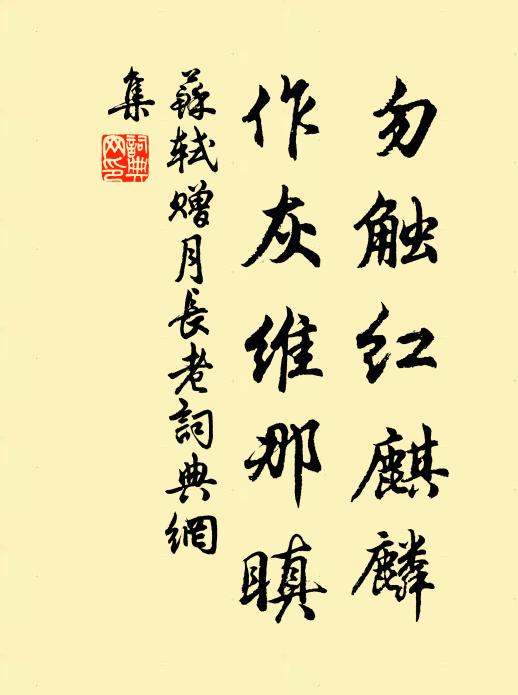 勿触红麒麟
作灰维那瞋
蘇轼赠月長老詞典網
集
詞典
网印